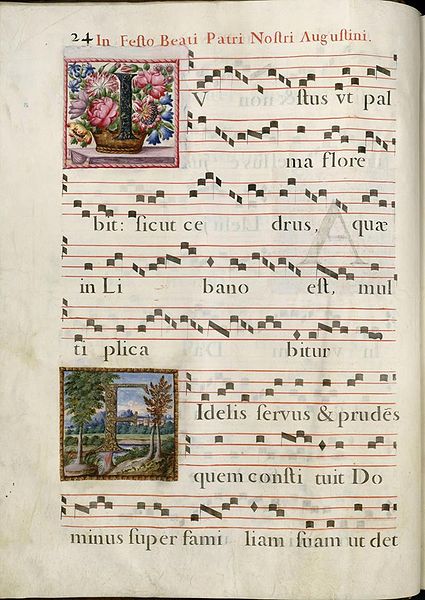 24 In Festo Beati Patri Nostri Augustini.
I V stus vt pal
ma flore
bit: sicut ce drus, quæ
in Li bano est, mul
ti plica bitur
F Idelis servus & prudēs
quem consti tuit Do
minus super fami liam suam ut det